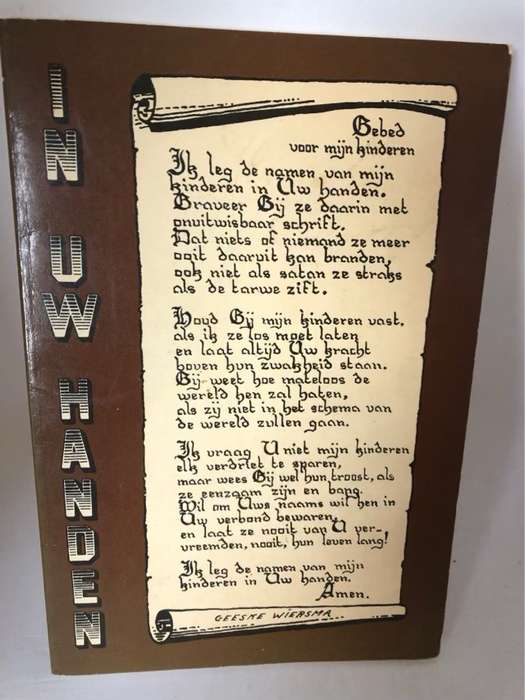 IN UW HANDEN
Gebed
voor mijn kinderen
Ik leg de namen van mijn
kinderen in Uw handen.
Graveer Gij ze daarin met
onuitwisbaar schrift.
Dat niets of niemand ze meer
ooit daaruit kan branden,
ook niet als satan ze straks
als de tarwe zift.
Houd Gij mijn kinderen vast,
als ik ze los moet laten
en laat altijd Uw kracht
boven hun zwakheid staan.
Gij weet hoe mateloos de
wereld hen zal haten,
als zij niet in het schema van
de wereld zullen gaan.
Ik vraag U niet mijn kinderen
elk verdriet te sparen,
maar wees Gij wel hun troost, als
ze eenzaam zijn en bang.
Wil om Uws naams wil hen in
Uw verbond bewaren,
en laat ze nooit van U ver-
vreemden, nooit, hun leven lang!
Ik leg de namen van mijn
kinderen in Uw handen.
Amen.
GEESKE WIERSMA